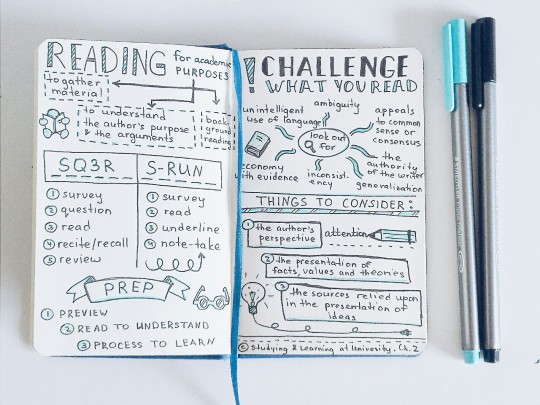 READING for academic
PURPOSES
to gather
material
to understand
the author's purpose
& the arguments
back-
ground
reading
SQ3R
① survey
② question
③ read
④ recite/recall
⑤ review
S-RUN
① survey
② read
③ underline
④ note-take
PREP
① PREVIEW
② READ TO UNDERSTAND
③ PROCESS TO LEARN
! CHALLENGE
WHAT YOU READ
unintelligent
use of language
ambiguity
appeals
to common
sense or
consensus
look out
for
economy
with evidence
inconsist-
ency
the
authority
of the writer
generalization
THINGS TO CONSIDER:
① the author's
perspective
attention
② the presentation of
facts, values and theories
③ the sources relied upon
in the presentation of
ideas
© Studying & Learning at University, Ch. 2